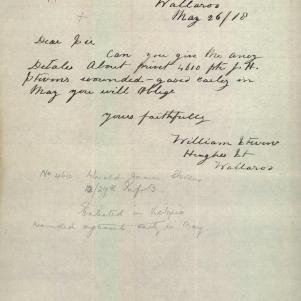 Wallaroo
May 26/18
Dear Sir
Can you give me any
Detales About privt 4610 pt J. H.
Stevens wounded - gased early in
May you will oblige
yours faithfully
William Stevens
Hughes St
Wallaroo
No 4610 Harold James Stevens
Enlisted in
wounded early in May